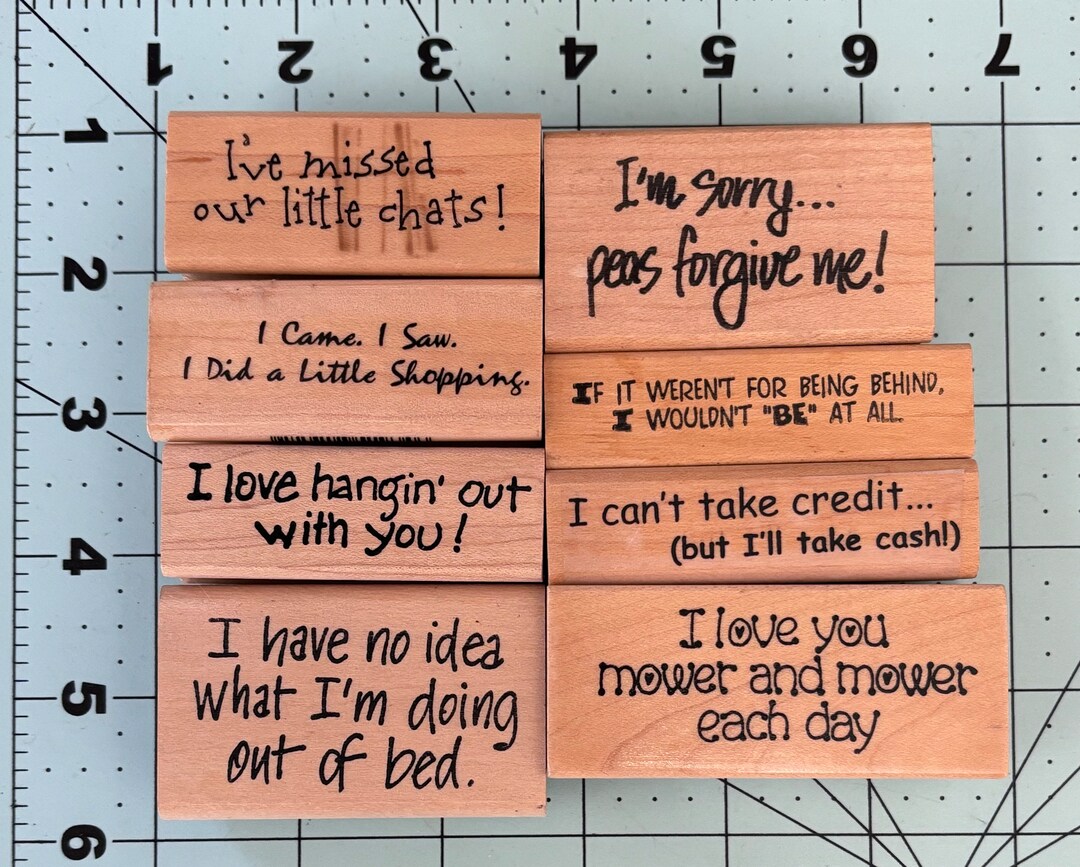 1 2 3 4 5 6 7
1
2
3
4
5
6
I've missed
our little chats!
I Came. I Saw.
I Did a Little Shopping.
I love hangin' out
with you!
I have no idea
what I'm doing
out of bed.
I'm sorry...
peas forgive me!
IF IT WEREN'T FOR BEING BEHIND,
I WOULDN'T "BE" AT ALL.
I can't take credit...
(but I'll take cash!)
I love you
mower and mower
each day